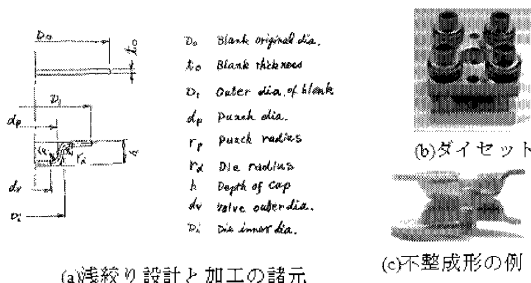 D₀
t₀
D₁
dₚ
r_d
h
dᵥ
Dᵢ
D₀ Blank original dia.
t₀ Blank thickness
D₁ Outer dia. of blank
dₚ Punch dia.
rₚ Punch radius
r_d Die radius
h Depth of cap
dᵥ Valve outer dia.
Dᵢ Die inner dia.
(a)浅絞り設計と加工の諸元
(b)ダイセット
(c)不整成形の例